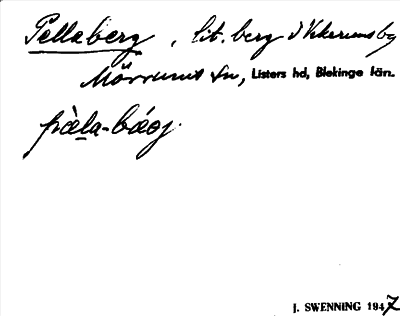 Pellaberg, lit. berg i Vekerums by
Mörrums sn, Listers hd, Blekinge län.
pà̠la-báṙj.
J. SWENNING 1947